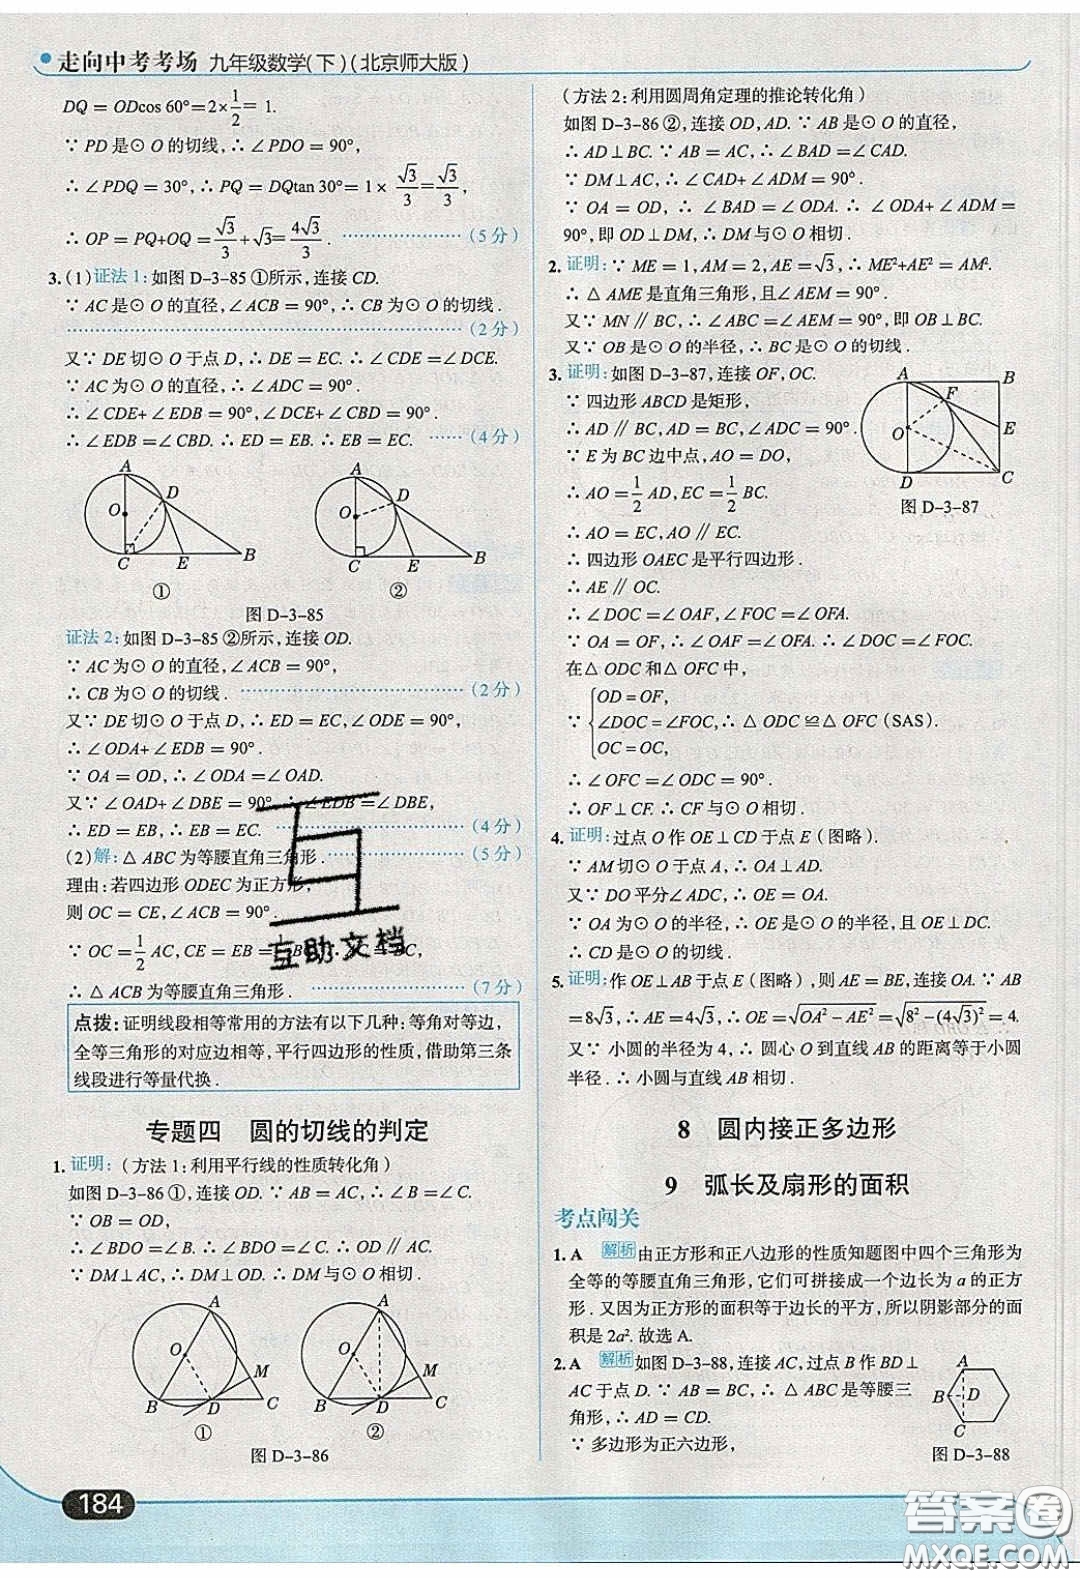 走向中考考场 九年级数学(下)(北京师大版)
DQ = ODcos 60° = 2 × 1/2 = 1.
∵ PD 是⊙O 的切线,∴ ∠PDO = 90°,
∴ ∠PDQ = 30°,∴ PQ = DQtan 30° = 1 × √3/3 = √3/3,
∴ OP = PQ+OQ = √3/3 + √3 = 4√3/3. ……(5 分)
3. (1) 证法 1:如图 D-3-85 ①所示,连接 CD.
∵ AC 是⊙O 的直径,∠ACB = 90°,∴ CB 为⊙O 的切线.
……(2 分)
又∵ DE 切⊙O 于点 D,∴ DE = EC. ∴ ∠CDE = ∠DCE.
∵ AC 为⊙O 的直径,∴ ∠ADC = 90°.
∴ ∠CDE+ ∠EDB = 90°,∠DCE+ ∠CBD = 90°.
∴ ∠EDB = ∠CBD. ∴ ED = EB. ∴ EB = EC. ……(4 分)
A
O
D
C
E
B
①
A
O
D
C
E
B
②
图 D-3-85
证法 2:如图 D-3-85 ②所示,连接 OD.
∵ AC 为⊙O 的直径,∠ACB = 90°,
∴ CB 为⊙O 的切线. ……(2 分)
又∵ DE 切⊙O 于点 D,∴ ED = EC,∠ODE = 90°,
∴ ∠ODA+ ∠EDB = 90°.
∵ OA = OD,∴ ∠ODA = ∠OAD.
又∵ ∠OAD+ ∠DBE = 90°,∴ ∠EDB = ∠DBE,
∴ ED = EB,∴ EB = EC. ……(4 分)
(2) 解:△ABC 为等腰直角三角形. ……(5 分)
理由:若四边形 ODEC 为正方形,
则 OC = CE,∠ACB = 90°.
∵ OC = 1/2 AC, CE = EB = 1/2 BC
∴ △ACB 为等腰直角三角形. ……(7 分)
点拨:证明线段相等常用的方法有以下几种:等角对等边,
全等三角形的对应边相等,平行四边形的性质,借助第三条
线段进行等量代换.
专题四 圆的切线的判定
1. 证明:(方法 1:利用平行线的性质转化角)
如图 D-3-86 ①,连接 OD. ∵ AB = AC,∴ ∠B = ∠C.
∵ OB = OD,
∴ ∠BDO = ∠B. ∴ ∠BDO = ∠C. ∴ OD ∥ AC.
∵ DM⊥AC, ∴ DM⊥OD. ∴ DM与⊙O 相切.
A
O
M
B
D
C
①
A
O
M
B
D
C
②
图 D-3-86
184
(方法 2:利用圆周角定理的推论转化角)
如图 D-3-86 ②,连接 OD, AD. ∵ AB 是⊙O 的直径,
∴ AD⊥BC. ∵ AB = AC, ∴ ∠BAD = ∠CAD.
∵ DM⊥AC, ∴ ∠CAD+ ∠ADM = 90°.
∵ OA = OD, ∴ ∠BAD = ∠ODA. ∴ ∠ODA+ ∠ADM =
90°,即 OD⊥DM, ∴ DM与⊙O 相切.
2. 证明:∵ ME = 1, AM = 2, AE = √3, ∴ ME²+AE² = AM².
∴ △AME是直角三角形,且∠AEM = 90°.
又∵ MN ∥ BC,∴ ∠ABC = ∠AEM = 90°,即 OB⊥BC.
又∵ OB 是⊙O 的半径,∴ BC是⊙O 的切线.
3. 证明:如图 D-3-87,连接 OF, OC.
∵ 四边形 ABCD 是矩形,
∴ AD ∥ BC, AD = BC,∠ADC = 90°.
∵ E 为 BC 边中点,AO = DO,
∴ AO = 1/2 AD, EC = 1/2 BC.
∴ AO = EC, AO ∥ EC.
∴ 四边形 OAEC 是平行四边形.
∴ AE ∥ OC.
∴ ∠DOC = ∠OAF,∠FOC = ∠OFA.
∵ OA = OF,∴ ∠OAF = ∠OFA. ∴ ∠DOC = ∠FOC.
在△ODC 和△OFC 中,
∵ { OD = OF, ∠DOC = ∠FOC, OC = OC, ∴ △ODC ≌ △OFC (SAS).
∴ ∠OFC = ∠ODC = 90°.
∴ OF⊥CF. ∴ CF 与⊙O 相切.
A
B
F
O
E
D
C
图 D-3-87
4. 证明:过点 O 作 OE⊥CD 于点 E (图略).
∵ AM 切⊙O 于点 A,∴ OA⊥AD.
又∵ DO 平分∠ADC,∴ OE = OA.
∵ OA 为⊙O 的半径,∴ OE 是⊙O 的半径,且 OE⊥DC.
∴ CD 是⊙O 的切线.
5. 证明:作 OE⊥AB 于点 E (图略),则 AE = BE,连接 OA. ∵ AB
=8√3,∴ AE = 4√3,∴ OE = √(OA² − AE²) = √(8² − (4√3)²) = 4.
又∵ 小圆的半径为 4,∴ 圆心 O 到直线 AB 的距离等于小圆
半径. ∴ 小圆与直线 AB 相切.
8 圆内接正多边形
9 弧长及扇形的面积
考点闯关
1. A 解析 由正方形和正八边形的性质知题图中四个三角形为
全等的等腰直角三角形,它们可拼接成一个边长为 a 的正方
形. 又因为正方形的面积等于边长的平方,所以阴影部分的面
积是 2a². 故选 A.
2. A 解析 如图 D-3-88,连接 AC,过点 B 作 BD⊥
AC 于点 D. ∵ AB = BC,∴ △ABC 是等腰三
角形,∴ AD = CD.
∵ 多边形为正六边形,
A
B
D
C
图 D-3-88
互助文档
答案圈
MXQE.COM